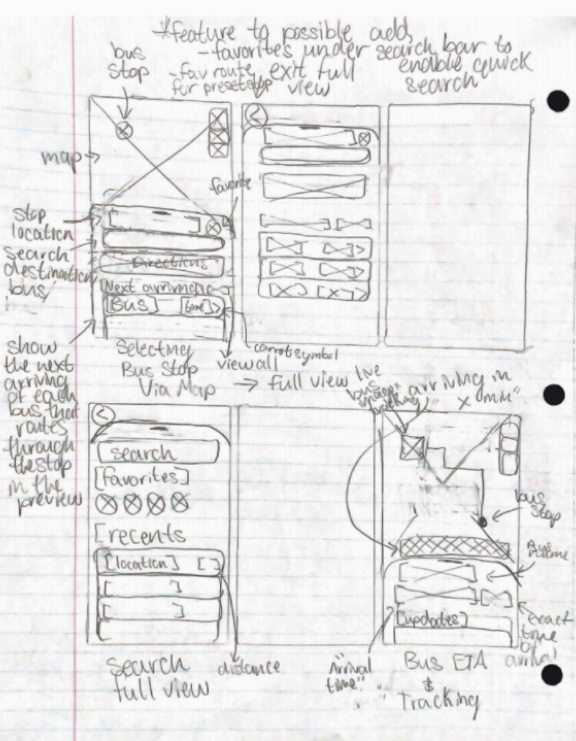 *feature to possible add
- favorites under search bar to
enable quick
search
- fav route
for preset stop
exit full
view
bus
stop
map →
favorite
stop
location
search
destination
bus
Directions
[Next arriving]
[Bus] [time] >
show
the next
arriving
of each
bus that
routes
through
the stop
in the
preview
Selecting
Bus Stop
Via Map
view all
carrot symbol
→ full view
live
bus
tracking
"arriving in
x min"
search
[favorites]
[recents
[location] [ ]
[ ]
[ ]
bus
stop
[updates]
exact
time
of
arrival
Search
full view
distance
"Arrival
time"
Bus ETA
&
Tracking